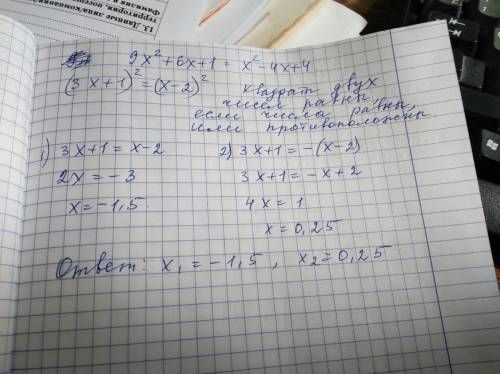 13. Данные
9x² + 6x + 1 = x² - 4x + 4
(3x + 1)² = (x - 2)²
Квадрат двух
чисел равны,
если числа равны,
или противоположны
1) 3x + 1 = x - 2
2x = - 3
x = - 1,5
2) 3x + 1 = - (x - 2)
3x + 1 = - x + 2
4x = 1
x = 0,25
Ответ: x₁ = - 1,5 , x₂ = 0,25